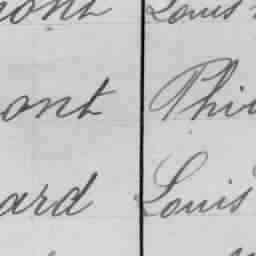 ont Louis
ont Phi
ard Louis